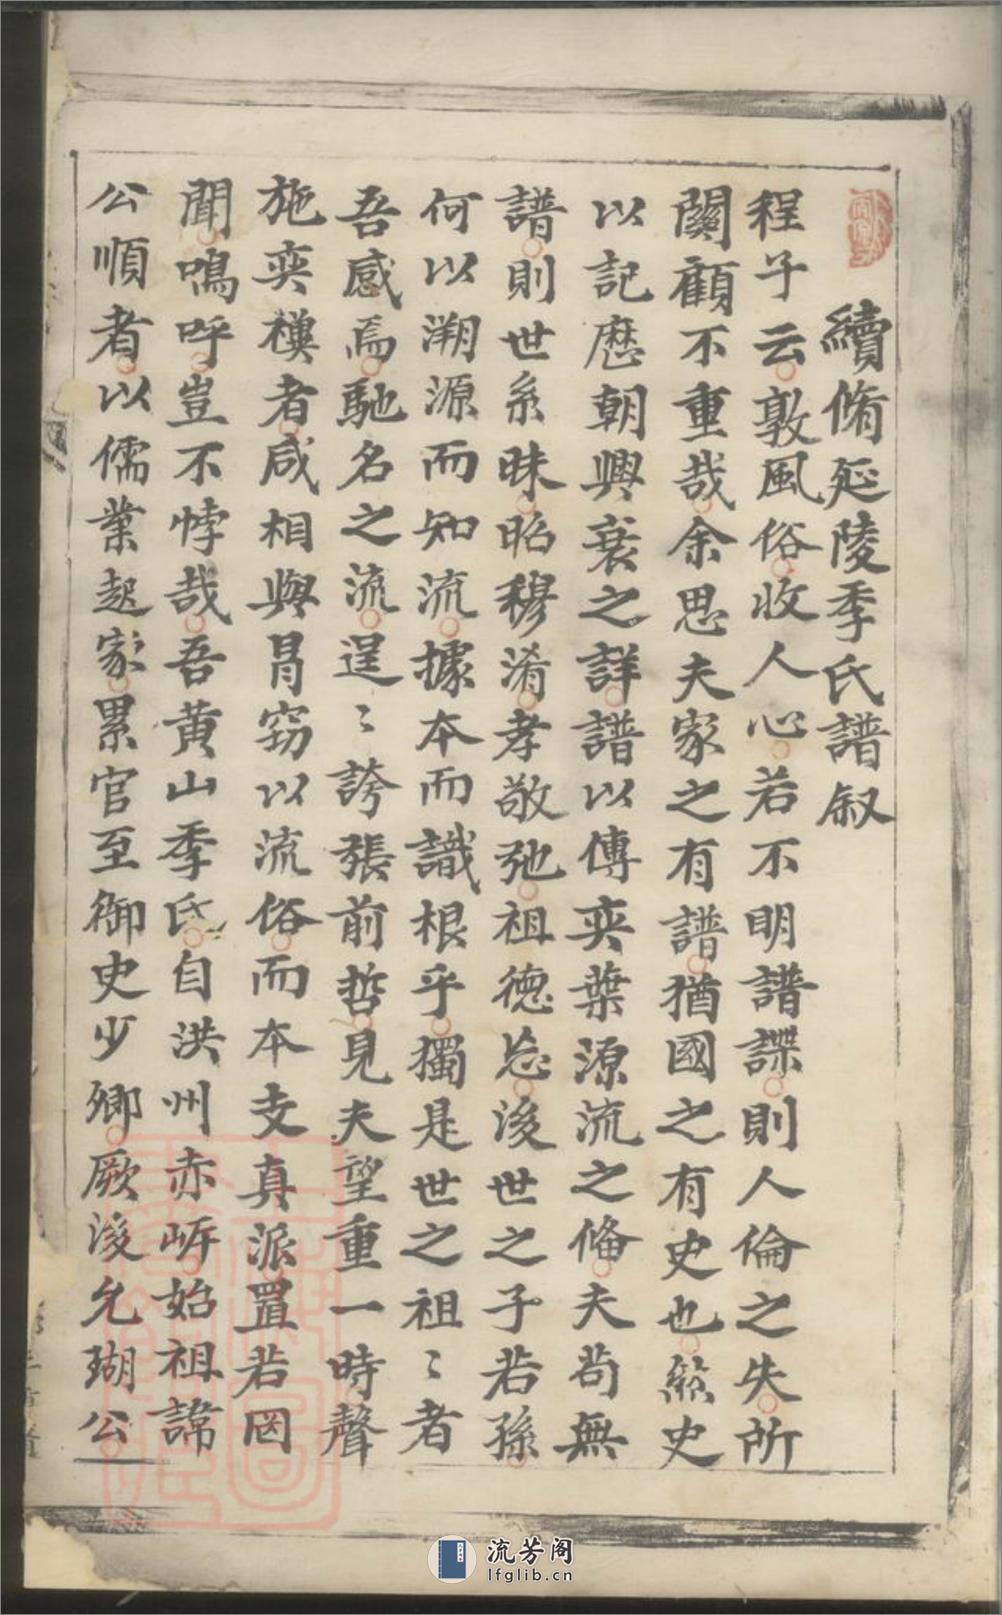 續脩延陵季氏譜叙
程子云敦風俗收人心若不明譜諜則人倫之失所
關顧不重哉余思夫家之有譜猶國之有史也然史
以記歷朝興衰之詳譜以傳奕葉源流之脩夫苟無
譜則世系昧昭穆淆孝敬弛祖德忘後世之子若孫
何以溯源而知流據本而識根乎獨是世之祖〻者
吾感焉馳名之流逞〻誇張前哲見夫望重一時聲
施奕禩者咸相與冒竊以流俗而本支真派置若罔
聞嗚呼豈不悖哉吾黄山季氏自洪州赤岸始祖諱
公順者以儒業起家累官至御史少卿厥後允瑚公
流芳阁
lfglib.cn